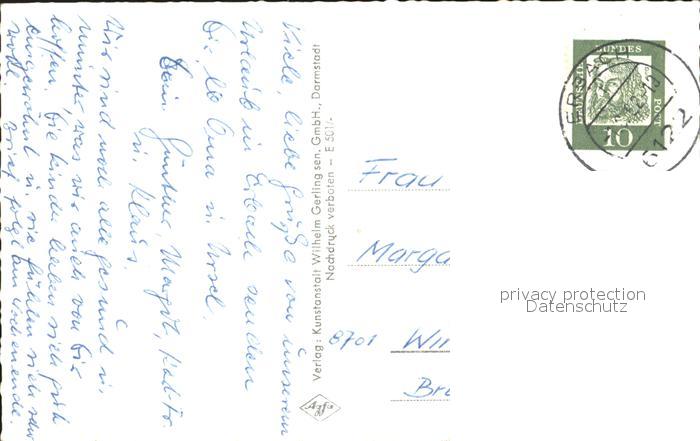 Viele, liebe Grüße von unserem
Urlaub in Erbach senden
Dir, lb. Oma u. Ursel.
Dein Günther, Margit,
u. Klaus.
Wir sind noch alle gesund u.
munter, was wir auch von Dir
hoffen. Die Kinder haben sich gut
u. sie fühlen sich sehr
wohl. Brief folgt am Wochenende.
Verlag: Kunstanstalt Wilhelm Gerling sen. GmbH., Darmstadt
Nachdruck verboten — E 501/-
Agfa
DEUTSCHE BUNDESPOST
10
ERBACH
6122
Frau
Marga
8701 Win
Bru
privacy protection
Datenschutz